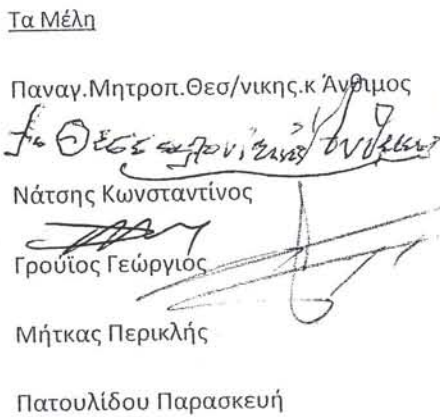 Τα Μέλη
Παναγ.Μητροπ.Θεσ/νικης.κ Άνθιμος
Θεσσαλονίκης Άνθιμος
Νάτσης Κωνσταντίνος
Γρούϊος Γεώργιος
Μήτκας Περικλής
Πατουλίδου Παρασκευή